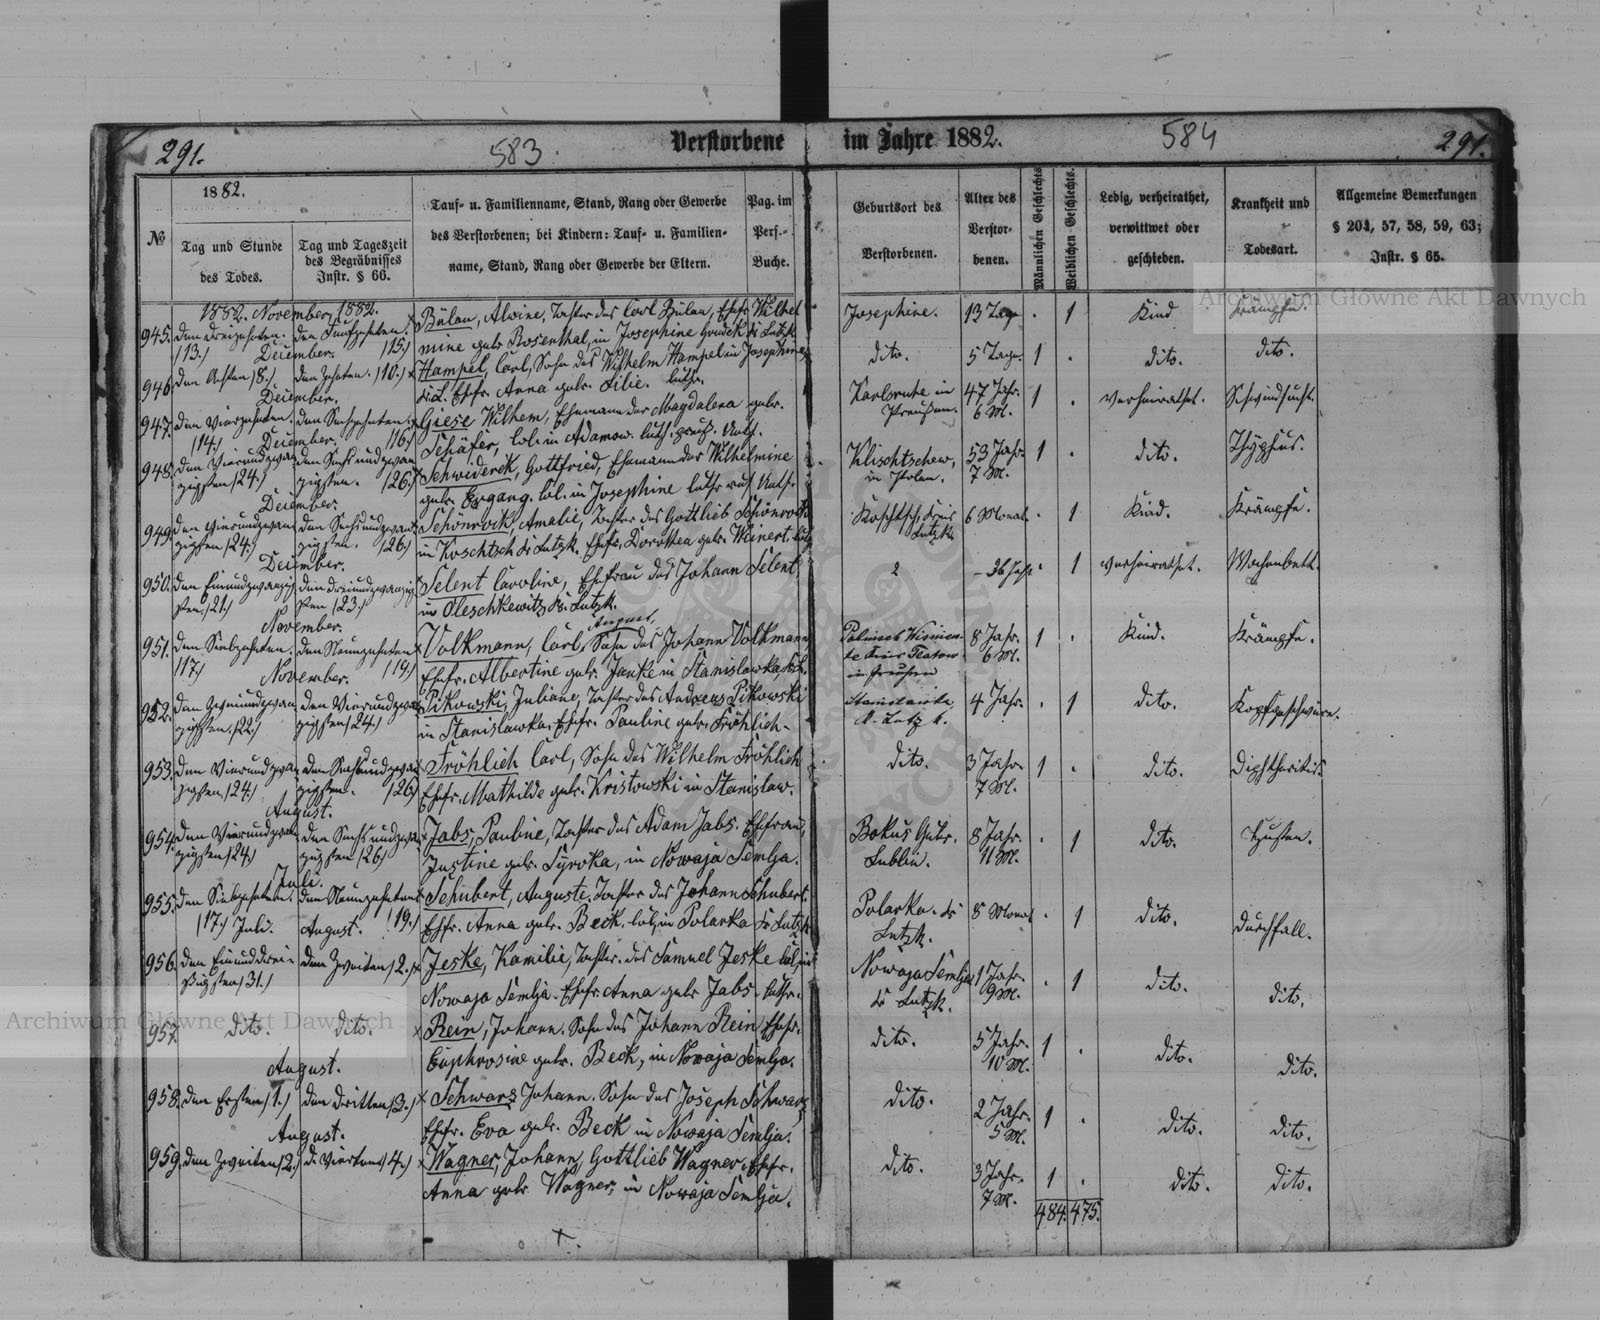 291.
583
Verstorbene
im Jahre 1882.
584
291.
№
1882.
Tag und Stunde
des Todes.
Tag und Tageszeit
des Begräbnisses
Instr. § 66.
Tauf- u. Familienname, Stand, Rang oder Gewerbe
des Verstorbenen; bei Kindern: Tauf- u. Familien-
name, Stand, Rang oder Gewerbe der Eltern.
Pag. im
Pers.-
Buche.
Geburtsort des
Verstorbenen.
Alter des
Verstor-
benen.
Männlichen Geschlechts
Weiblichen Geschlechts.
Ledig, verheirathet,
verwittwet oder
geschieden.
Krankheit und
Todesart.
Allgemeine Bemerkungen
§ 204, 57, 58, 59, 63;
Instr. § 65.
1882. November 1882.
945. den dreizehnten. den Fünfzehnten.
/13./ /15./
Bülau, Alwine, Tochter des Carl Bülau, Ehefr. Wilhel
mine gebr. Rosenthal, in Josephine
Josephine. 13 Tage . 1 Kind Krämpfe.
December.
946. den Achten /8./ den Zehnten. /10./
Hampel, Carl, Sohn des Wilhelm Hampel in Josephine
Ehfr. Anna gebr. Lilie. luthr.
dito. 5 Tage. 1 . dito. dito.
December.
947. den Vierzehnten. den Sechzehnten.
/14./ /16./
Giese Wilhem, Ehemann der Magdalena gebr.
Schäfer, Col. in Adamow. luth.
Karlsruhe in
Preußen. 47 Jahr. 6 M. 1 . verheirathet. Schwindsucht.
December.
948. den Vierundzwan den Sechsundzwan
zigsten /24./ zigsten. /26./
Schwiderek, Gottfried, Ehemann der Wilhelmine
gebr. Col. in Josephine luthr
Klischtschew,
in Polen. 53 Jahr. 7 M. 1 . dito. Thyphus.
December.
949. den Vierundzwan den Sechsundzwan
zigsten /24./ zigsten. /26./
Schönrock, Amalie, Tochter des Gottlieb Schönrock
in Koschtsch Kr. Lutzk. Ehefr. Dorothea gebr. Weinert.
Koschtsch, Kreis
Lutzk 6 Monat. . 1 Kind. Krämpfe.
December.
950. den Einundzwanzig den dreiundzwanzig
sten /21./ sten /23./
Selent Caroline, Ehefrau des Johann Selent,
in Oleschkewitz Kr. Lutzk.
36 Jahr . 1 verheirathet. Wochenbett.
November.
951. den Siebzehnten. den Neunzehnten
/17./ /19./
August,
Volkmann, Carl, Sohn des Johann Volkmann,
Ehefr. Albertine gebr. Janke in Stanislawka
in Preussen 8 Jahr. 6 M. 1 . Kind. Krämpfe.
November.
952. den Zweiundzwan den Vierundzwan
zigsten /22./ zigsten /24./
Pikowski, Juliane, Tochter des Andreas Pikowski
in Stanislawka, Ehfr. Pauline gebr. Fröhlich.
4 Jahr. . 1 dito. Kopfgeschwüre.
953. den Vierundzwan den Sechsundzwan
zigsten /24./ zigsten. /26./
Fröhlich Carl, Sohn des Wilhelm Fröhlich
Ehfr. Mathilde gebr. Kristowski in Stanislaw.
dito. 3 Jahr. 7 M. 1 . dito. Diphtheritis
August.
954. den Vierundzwan den Sechsundzwan
zigsten /24./ zigsten /26./
Jabs, Pauline, Tochter des Adam Jabs. Ehefrau,
Justine gebr. Syroka, in Nowaja Semlja.
Bokus Gubr.
Lublin. 8 Jahr. 11 M. . 1 dito. Husten.
Juli.
955. den Siebzehnten. den Neunzehnten
/17./ Juli. August. /19./
Schubert, Auguste, Tochter des Johann Schubert.
Ehfr. Anna gebr. Beck. in Polarka Kr Lutzk
Polarka. Kr
Lutzk. 8 Monat . 1 dito. Durchfall.
956. den Einunddrei- den Zweiten /2./
ßigsten /31./
Jeske, Kamilie, Tochter des Samuel Jeske
Nowaja Semlja. Ehfr. Anna gebr Jabs. luthr.
Nowaja Semlja
Kr Lutzk. 1 Jahr. 9 M. . 1 dito. dito.
957. dito. dito.
Rein, Johann. Sohn des Johann Rein Ehefr.
Euphrosine gebr. Beck, in Nowaja Semlja.
dito. 5 Jahr. 10 M. 1 . dito. dito.
August.
958. den Ersten /1./ den dritten /3./
Schwarz Johann. Sohn des Joseph Schwarz
Ehfr. Eva gebr. Beck in Nowaja Semlja.
dito. 2 Jahr. 5 M. 1 . dito. dito.
August.
959. den Zweiten /2./ d. Vierten /4./
Wagner, Johann, Gottlieb Wagner. Ehefr.
Anna gebr Wagner, in Nowaja Semlja.
dito. 3 Jahr. 7 M. 1 . dito. dito.
484. 475.
Archiwum Główne Akt Dawnych
Archiwum Główne Akt Dawnych